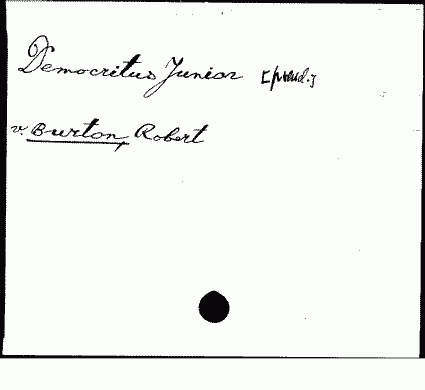 Democritus Junior [pseud.]
v. Burton, Robert